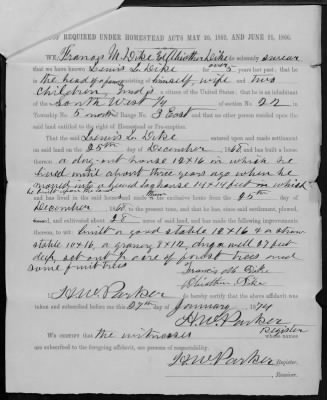 PROOF REQUIRED UNDER HOMESTEAD ACTS MAY 20, 1862, AND JUNE 21, 1866.
WE, Francis M. Dike & do solemnly swear
that we have known Lewis L. Dike for over 5 years last past; that he is
the head of a family consisting of himself, wife and two
children and is a citizen of the United States; that he is an inhabitant
of the South West 1/4 of section No. 22 in
Township No. 5 north Range No. 3 East and that no other person resided upon the
said land entitled to the right of Homestead or Pre-emption.
That the said Lewis L. Dike entered upon and made settlement
on said land on the 25th day of December, 1868 and has built a house
thereon a dug-out house 12x16 in which he
lived until about three years ago when he
a hewed log house 14x14 feet in which
he
and has lived in the said house and made it his exclusive home from the 25th day of
December, 1868 to the present time, and that he has, since said settlement, plowed,
fenced, and cultivated about 38 acres of said land, and has made the following improvements
thereon, to wit: built a good stable 12x16 & a straw
stable 10x16, a granary 8x12, dug a well 27 feet
deep, set out acre of forest trees and
some fruit trees
Francis M. Dike
Dike
I, H W Parker do hereby certify that the above affidavit was
taken and subscribed before me this 27th day of January 1874
H W Parker
Register
WE CERTIFY that the witnesses whose names
are subscribed to the foregoing affidavit, are persons of respectability.
H W Parker, Register.
Receiver.